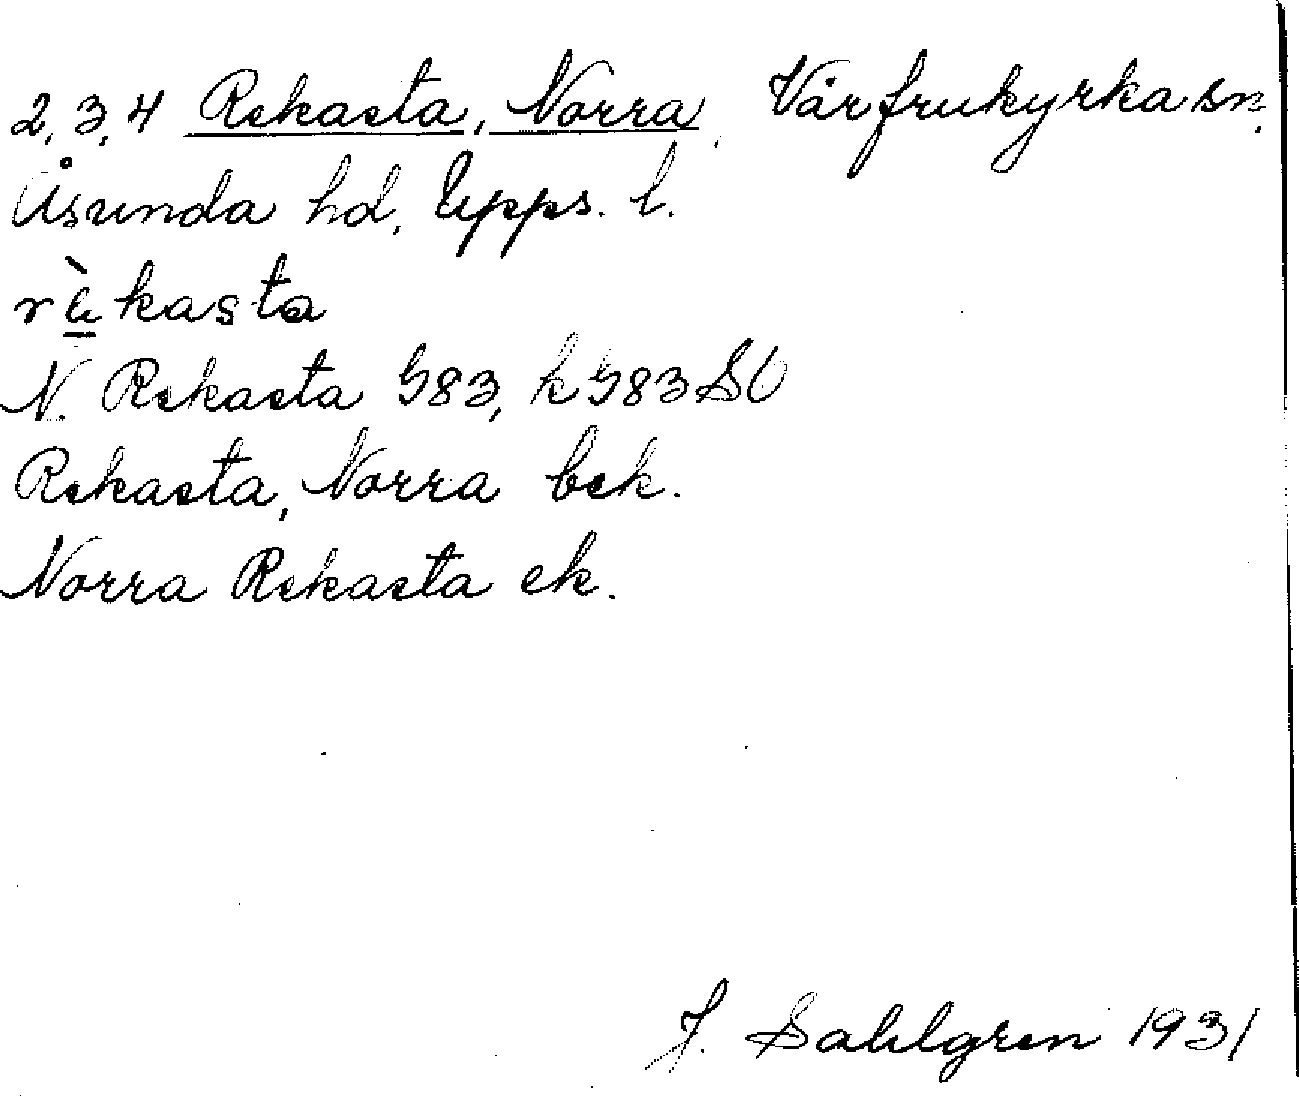 2, 3, 4 Rekasta, Norra, Vårfrukyrka sn,
Åsunda hd, Upps. l.
rè̲kasta
N. Rekasta G83, k G83 SO
Rekasta, Norra bek.
Norra Rekasta ek.
J. Sahlgren 1931